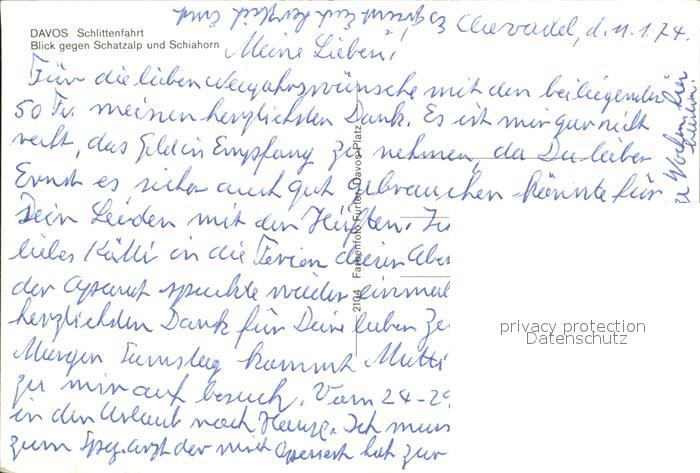 DAVOS Schlittenfahrt
Blick gegen Schatzalp und Schiahorn
Clavadel, d. 11.1.74.
Meine Lieben!
Für die lieben Neujahrswünsche mit den beiliegenden
50 Fr. meinen herzlichsten Dank. Es ist mir gar nicht
recht, das Geld in Empfang zu nehmen, da Du lieber
Ernst es sicher auch gut gebrauchen könnte für
Dein Leiden mit den Hüften.
liebes Kätti in die Ferien dieser
der Aparat spuckte wieder einmal
herzlichsten Dank für Deine lieben
Morgen Samstag kommt Mutti
zu mir auf besuch. Vom 24-29
in den Urlaub nach Hause. Ich muss
zum Spez.arzt der mich operiert hat zur
2104 Farbenfoto Furter, Davos-Platz
privacy protection
Datenschutz